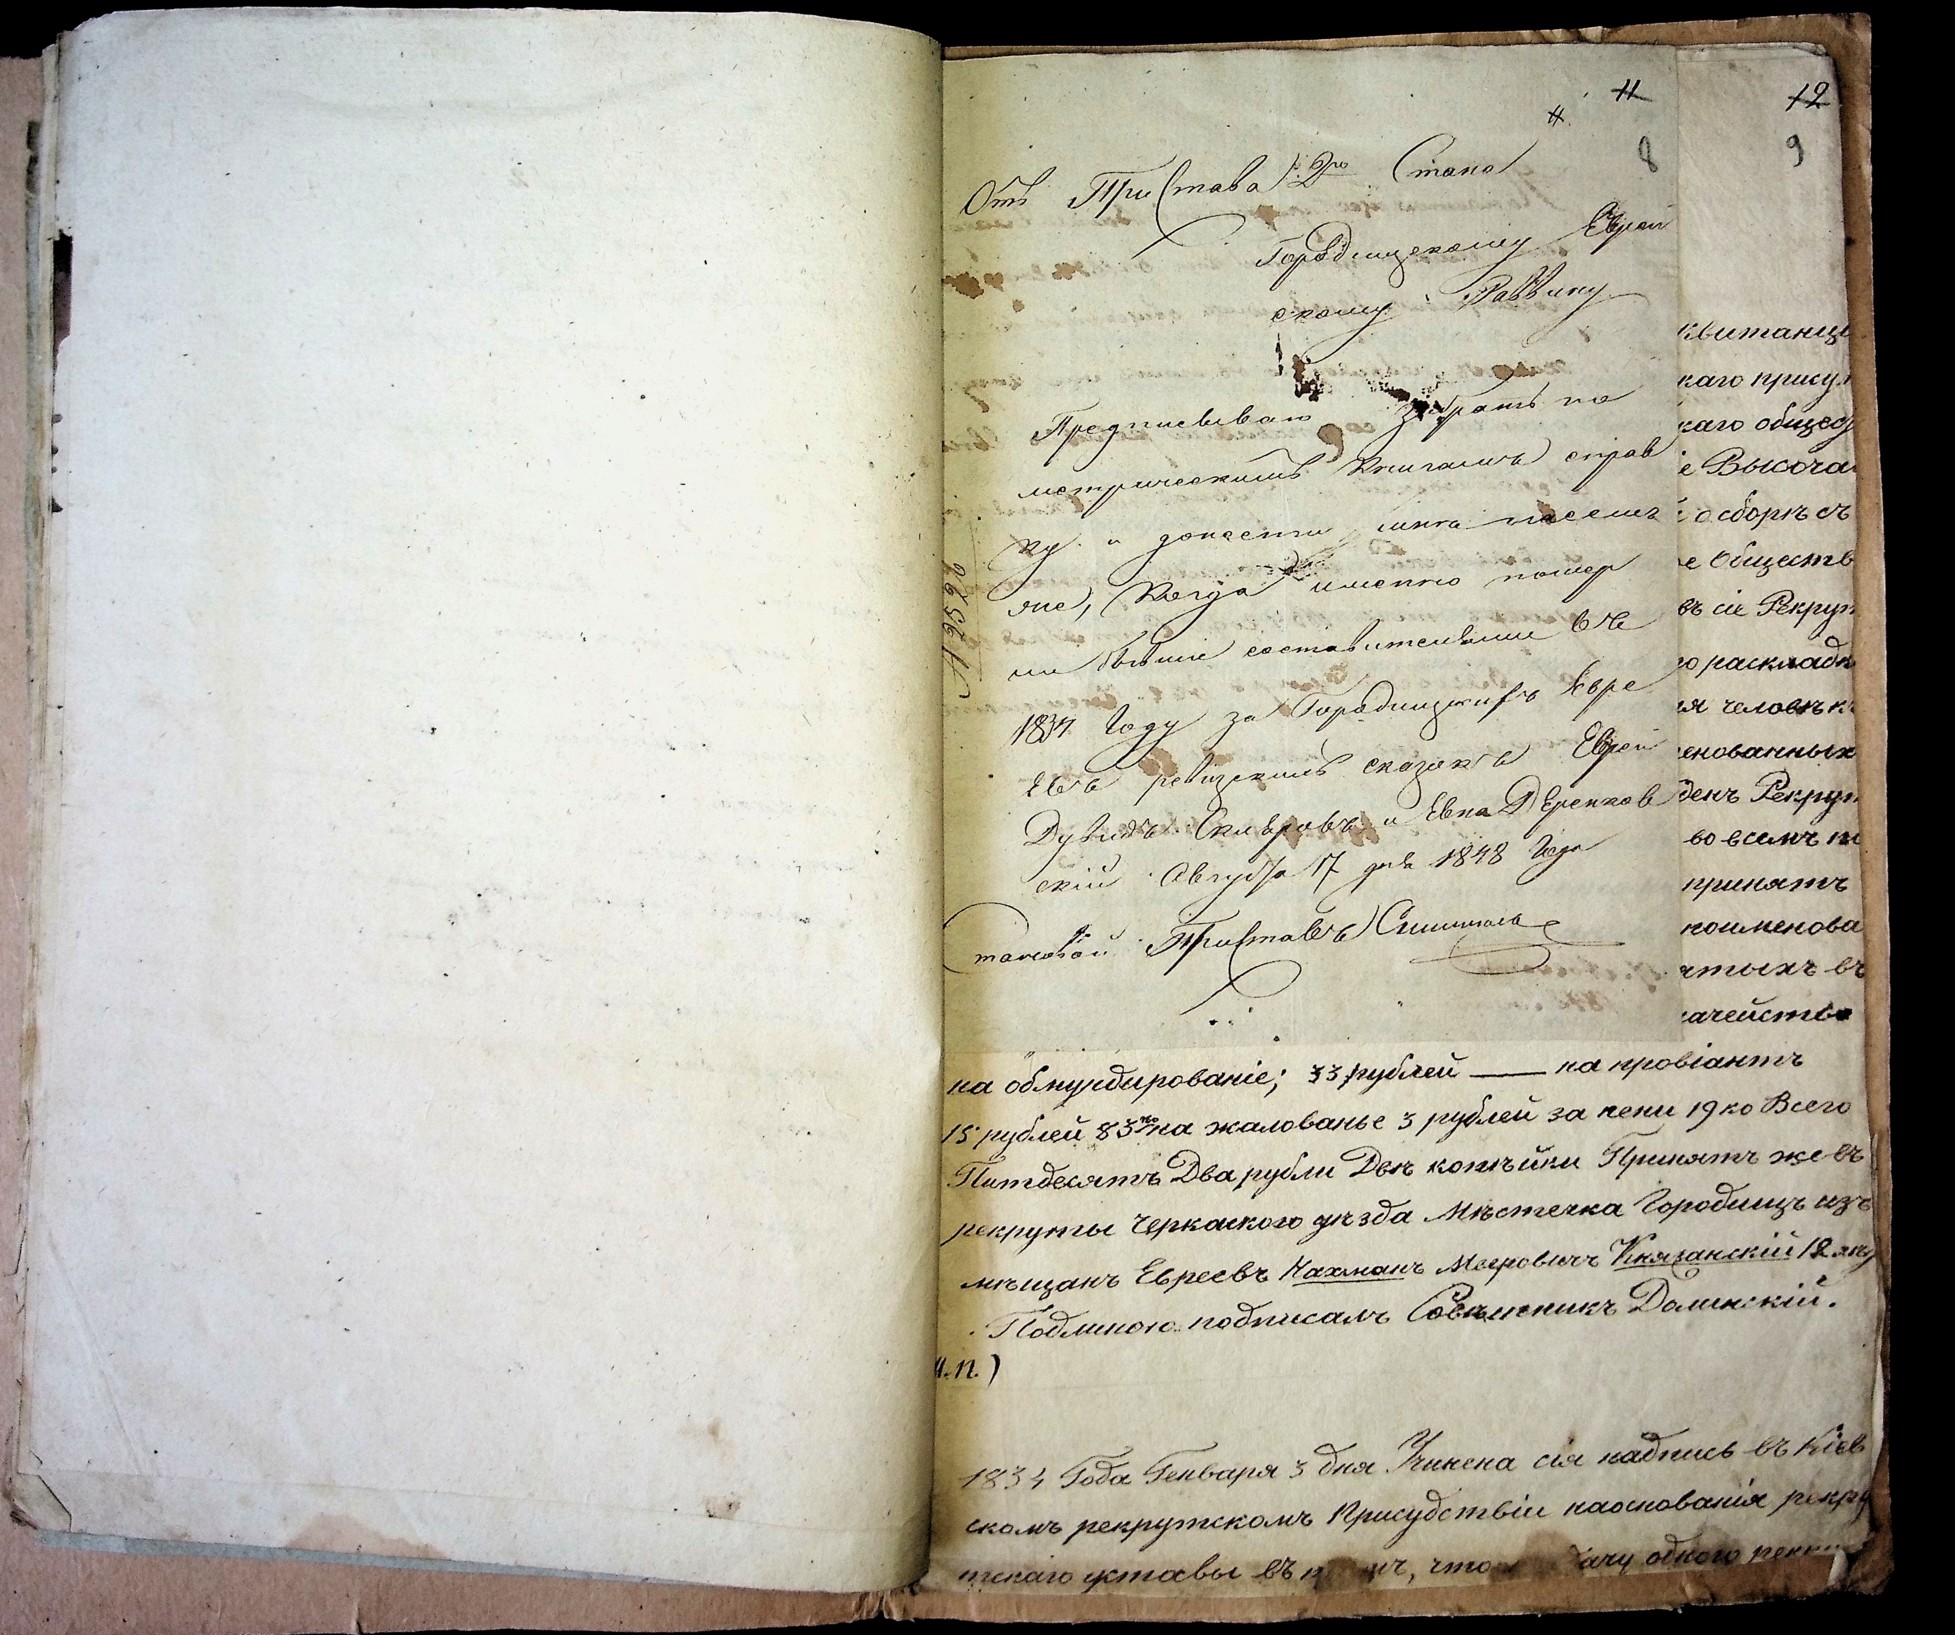 11
8
Отъ Пристава 2го Стана
Городищскому Еврей
скому Раввину
Предписываю забрать по
метрическимъ книгамъ справ
ку и донести мнѣ
когда именно помер
ли бывшіе составителями
1834 году за Городищскихъ Евре
евъ ревизскихъ сказокъ Евреи
Дувидъ Скляровъ и Евна Деренков
скій Августа 17 дня 1848 года
Становой Приставъ
№ 2526
12
9
квитанці
каго присут
каго общес
е Высоча
о сборѣ съ
е Обществ
въ сіе Рекрут
го раскладк
ія человѣкъ
енованных
денъ Рекрут
во всемъ
принятъ
поименова
ятыхъ въ
ачейство
на обмундированіе; 33 рублей — на провіантъ
15 рублей 83 ко на жалованье 3 рублей за пени 19 ко Всего
Питдесятъ Два рубли Двѣ копѣйки Принятъ же въ
рекруты Черкаского уѣзда Мѣстечка Городищъ изъ
мѣщанъ Евреевъ Нахманъ Мееровичъ Княжанскій 12
Подлиною подписалъ Совѣтникъ Долинскій.
М.П.)
1834 Года Генваря 3 дня Учинена сія надпись въ Кіев
скомъ рекрутскомъ Присудствіи наоснованія рекру
тскаго уставы въ что ачу одного